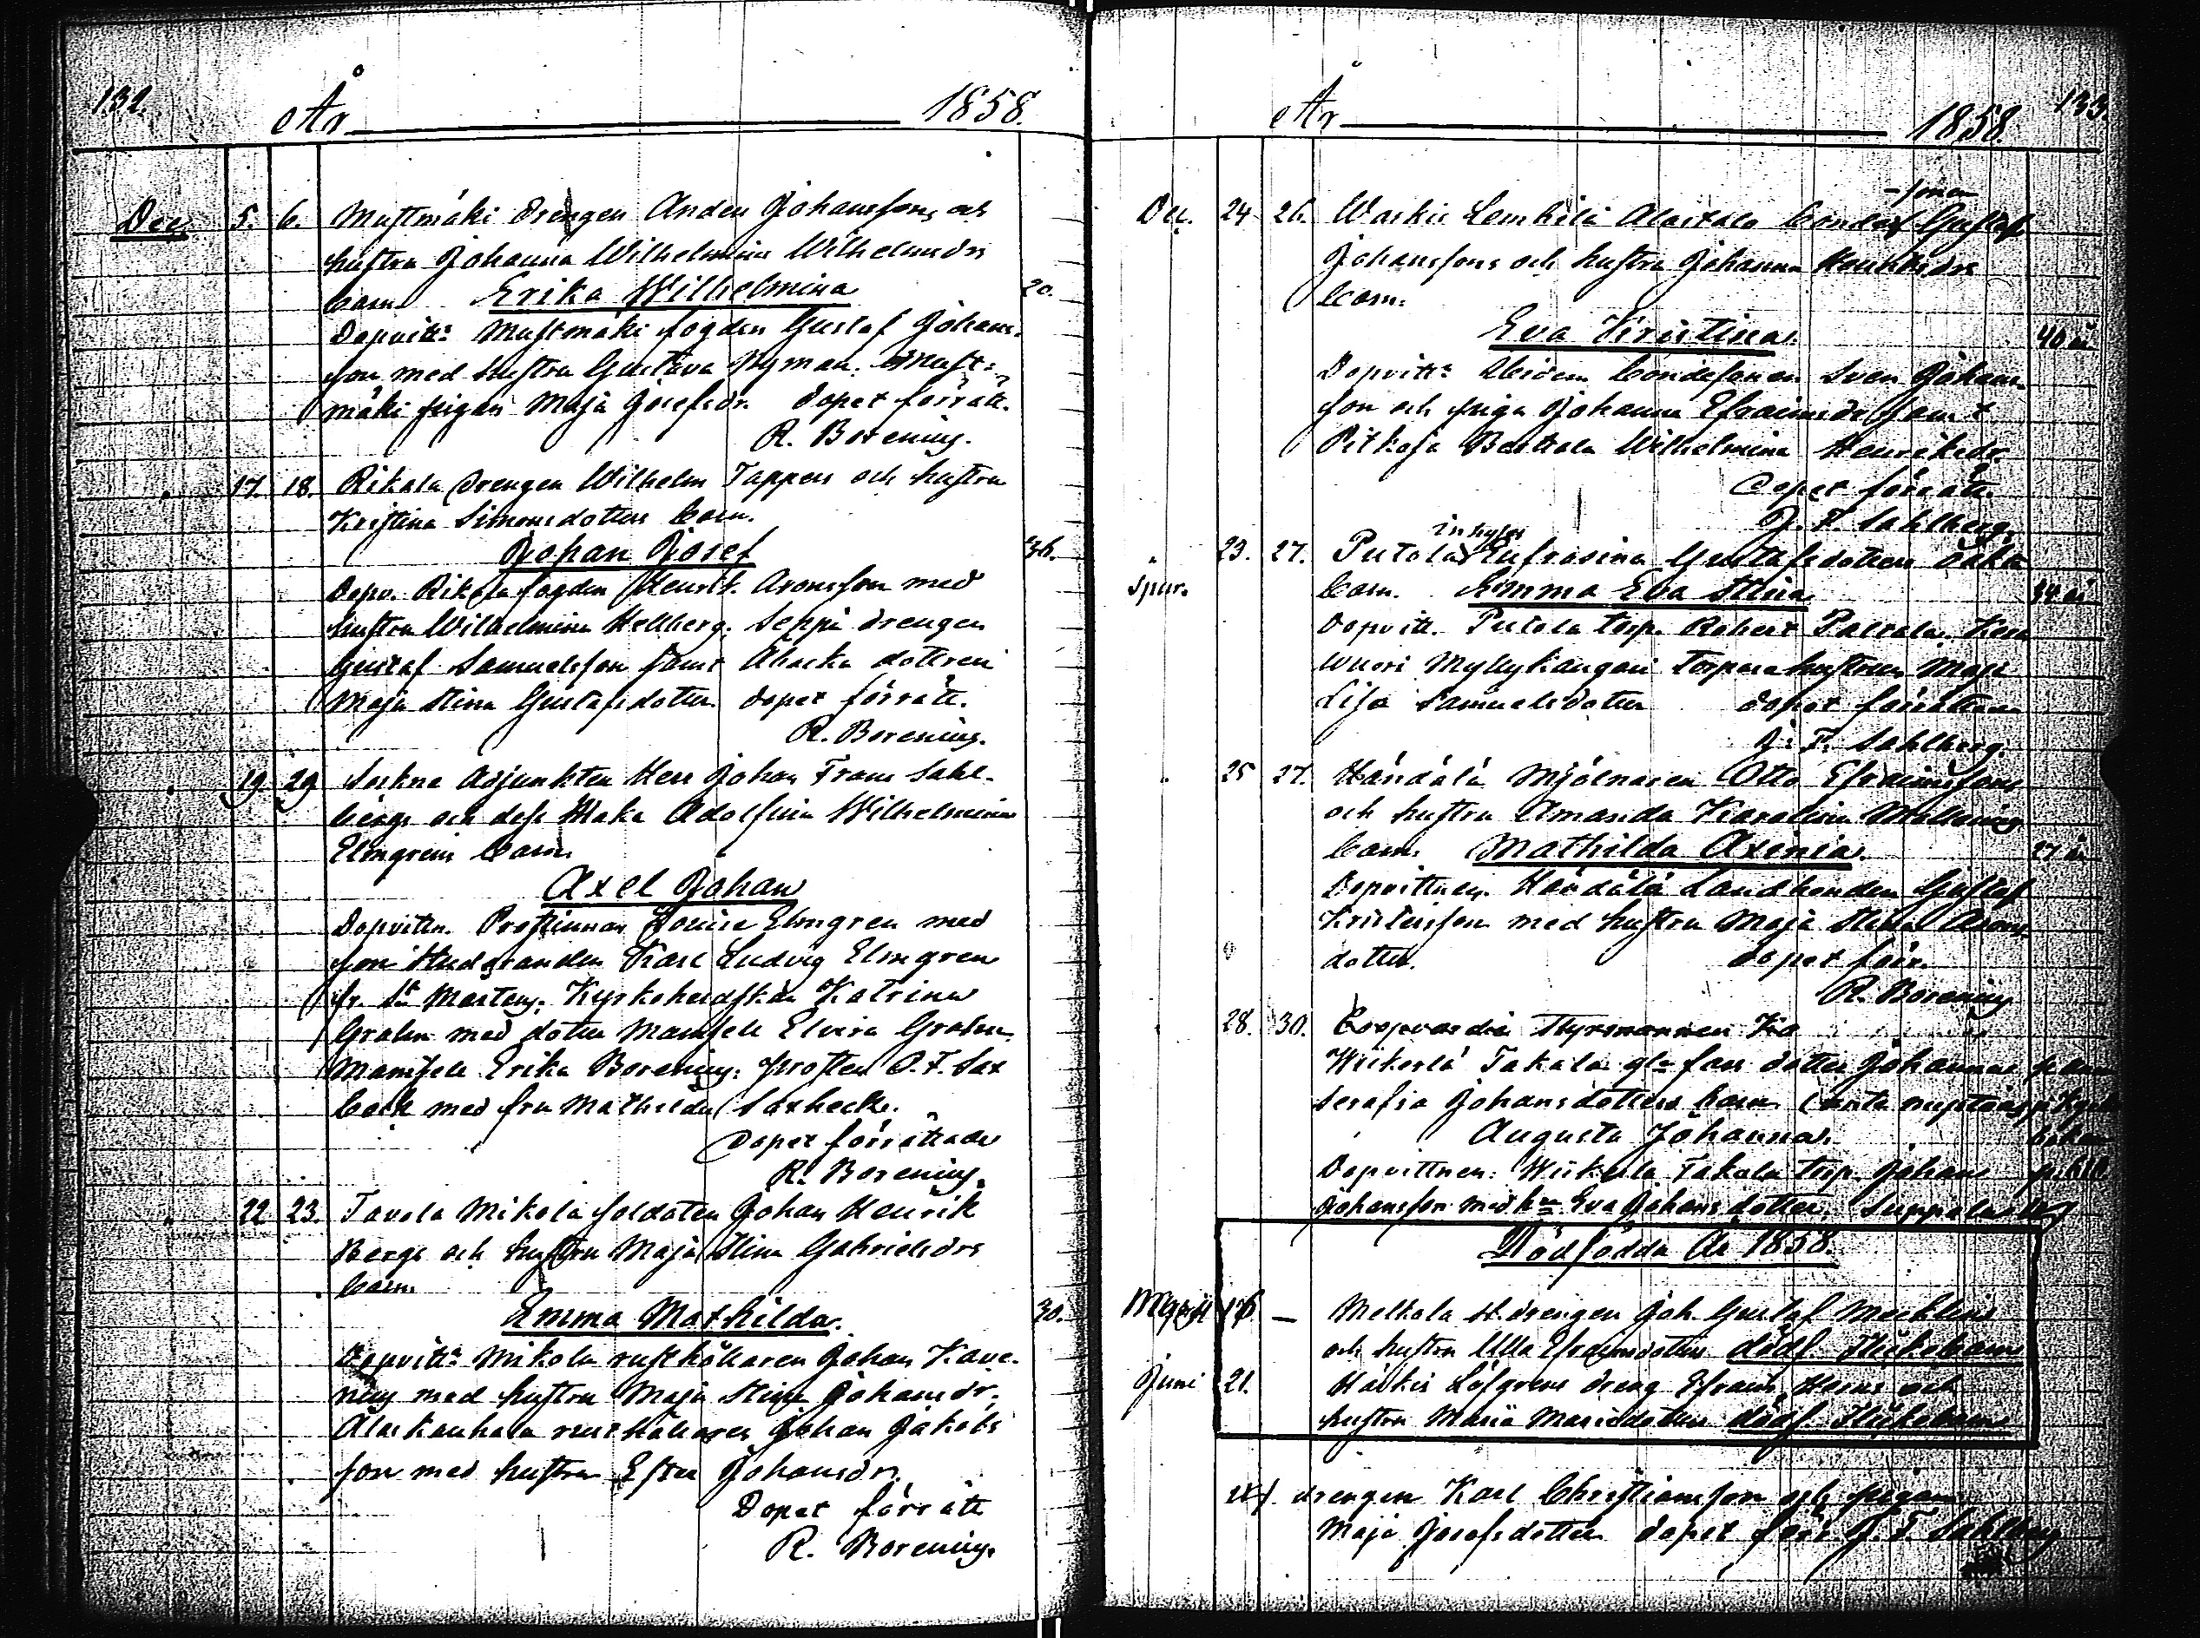 132.
År 1858.
Dec. 5. 6. Mustmäki drengen Anders Johanssons och
hustru Johanna Wilhelmina Wilhelmsdrs
barn Erika Wilhelmina 20.
Dopvittn: Mustmäki fogden Gustaf Johans-
son med hustru Gustava Nyman. Must-
mäki pigan Maja Josefsdr. Dopet förrätt.
R. Borenius.
17. 18. Rikala drengen Wilhelm Tappers och hustru
Kristina Simonsdotters barn.
Johan Josef 36.
Dopv. Rikala fogden Henrik Aronsson med
hustru Wilhelmina Hellberg. Seppä drengen
Gustaf Samuelsson samt Alaska dottren
Maja Stina Gustafsdotter. Dopet förrätt.
R. Borenius.
19 29 Sockne Adjunkten Herr Johan Frans Sahl-
bergs och dess Maka Adolfina Wilhelmina
Elmgrens barn
Axel Johan
Dopvittn. Prostinnan Lovise Elmgren med
son Studeranden Karl Ludvig Elmgren
fr. St Mårtens. Kyrkoherdskan Katrina
Grahn med dotter Mamsell Elvira Grahn.
Mamsell Erika Borenius. Prosten O. F. Sax
back med fru Mathilda Saxbeck.
Dopet förrättade
R. Borenius.
22 23. Tavola Mikola soldaten Johan Henrik
Bergs och hustru Maja Stina Gabrielsdrs
barn
Emma Mathilda. 30.
Dopvittn: Mikola rusthållaren Johan Kave-
nius med hustru Maja Stina Johansdr.
Alaskauhala rusthållaren Johan Jakobs
son med hustru Ester Johansdr.
Dopet förrätt
R. Borenius.
133.
År 1858.
-sonen
Dec. 24 26. Waskio Lemkilä Alastalo bonde Gustaf
Johanssons och hustru Johanna Henriksdrs
barn.
Eva Kristina. 40 år
Dopvittn: bondesonen Sven Johans-
son och piga Johanna Efraimsdr samt
Pitkoja Bastala Wilhelmina Henriksdr.
Dopet förrätt.
J. F. Sahlberg.
inhyses
23. 27. Putola Eufrosina Gustafsdotters oäkta
spur. barn. Emma Eva Stina 34 år
Dopvittn. Putola torp. Robert Paltala. Kesk
wuori Myllykangari torpare hustrun Maja
Lisa Samuelsdotter Dopet förrättade
J. F. Sahlberg.
25 27. Händälä Mjölnaren Otto Efraimssons
och hustru Amanda Karolina Mallenius
barn. Mathilda Axenia. 27 år
Dopvittnen. Händälä Landbonden Gustaf
Kristersson med hustru Maja Stina Arons-
dotter. Dopet förr.
R. Borenius
28. 30. Coopvardie Styrmannen
Wiikerlä Takala dotter Johanna
Serafia Johansdotters barn
Augusta Johanna.
Dopvittnen: Wiikerla Takala torp. Johan
Johansson med hu Eva Johansdotter.
Dödfödda År 1858.
Mars 16. — Melkola st.drengen Joh. Gustaf Mechlins
och hustru Ulla Efraimsdotters dödf. flickebarn
Juni 21. Härkis Löfgrens dreng Efraim och
hustru Maria Mariedotters dödf. flickebarn
drengen Karl Christiansson och pigan
Maja Josefsdotter Dopet förr. J. F. Sahlberg